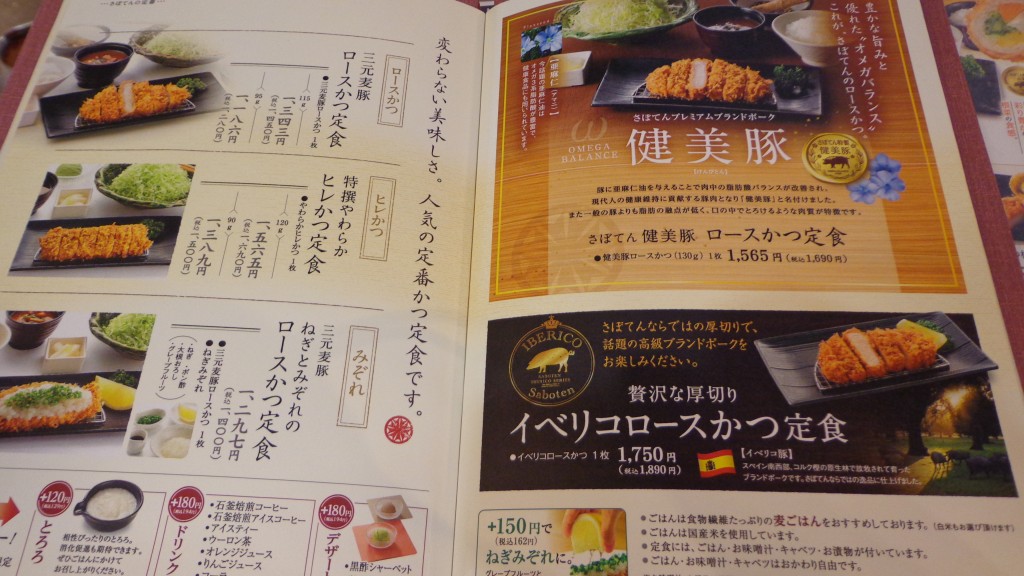 さぼてんの定番
変わらない美味しさ。人気の定番かつ定食です。
ロースかつ
三元麦豚
ロースかつ定食
●三元麦豚ロースかつ1枚
115g
一、三四三円
(税込一、四五〇円)
95g
一、一八六円
(税込一、二八〇円)
ヒレかつ
特撰やわらか
ヒレかつ定食
●やわらかヒレかつ1枚
120g
一、五六五円
(税込一、六九〇円)
90g
一、三八九円
(税込一、五〇〇円)
みぞれ
三元麦豚
ねぎとみぞれの
ロースかつ定食
一、二九七円
(税込一、四〇〇円)
●三元麦豚ロースかつ1枚
●ねぎみぞれ
(ねぎ・ポン酢・大根おろし・グレープフルーツ)
+120円
とろろ
相性ぴったりのとろろ。
消化促進も期待できます。
ぜひごはんにかけて
お召し上がりください。
+180円
ドリンク
•石釜焙煎コーヒー
•石釜焙煎アイスコーヒー
•アイスティー
•ウーロン茶
•オレンジジュース
•りんごジュース
+180円
デザート
•黒酢シャーベット
豊かな旨みと
優れた“オメガバランス”
これが、さぼてんのロースかつ。
【亜麻仁(アマニ)】
さぼてんプレミアムブランドポーク
ω
OMEGA
BALANCE
健美豚
【けんびとん】
さぼてん特撰
健美豚
豚に亜麻仁油を与えることで肉中の脂肪酸バランスが改善され、
現代人の健康維持に貢献する豚肉となり「健美豚」と名付けました。
また一般の豚よりも脂肪の融点が低く、口の中でとろけるような肉質が特徴です。
さぼてん 健美豚 ロースかつ定食
●健美豚ロースかつ(130g) 1枚 1,565円(税込1,690円)
IBERICO
Saboten
さぼてんならではの厚切りで、
話題の高級ブランドポークを
お楽しみください。
贅沢な厚切り
イベリコロースかつ定食
●イベリコロースかつ 1枚 1,750円
(税込1,890円)
【イベリコ豚】
スペイン南西部、コルク樫の原生林で放牧されて育った
ブランドポークです。さぼてんならではの逸品に仕上げました。
+150円で
(税込162円)
ねぎみぞれに。
グレープフルーツと
●ごはんは食物繊維たっぷりの麦ごはんをおすすめしております。(白米もお選び頂けます)
●ごはんは国産米を使用しています。
●定食には、ごはん・お味噌汁・キャベツ・お漬物が付いています。
●ごはん・お味噌汁・キャベツはおかわり自由です。